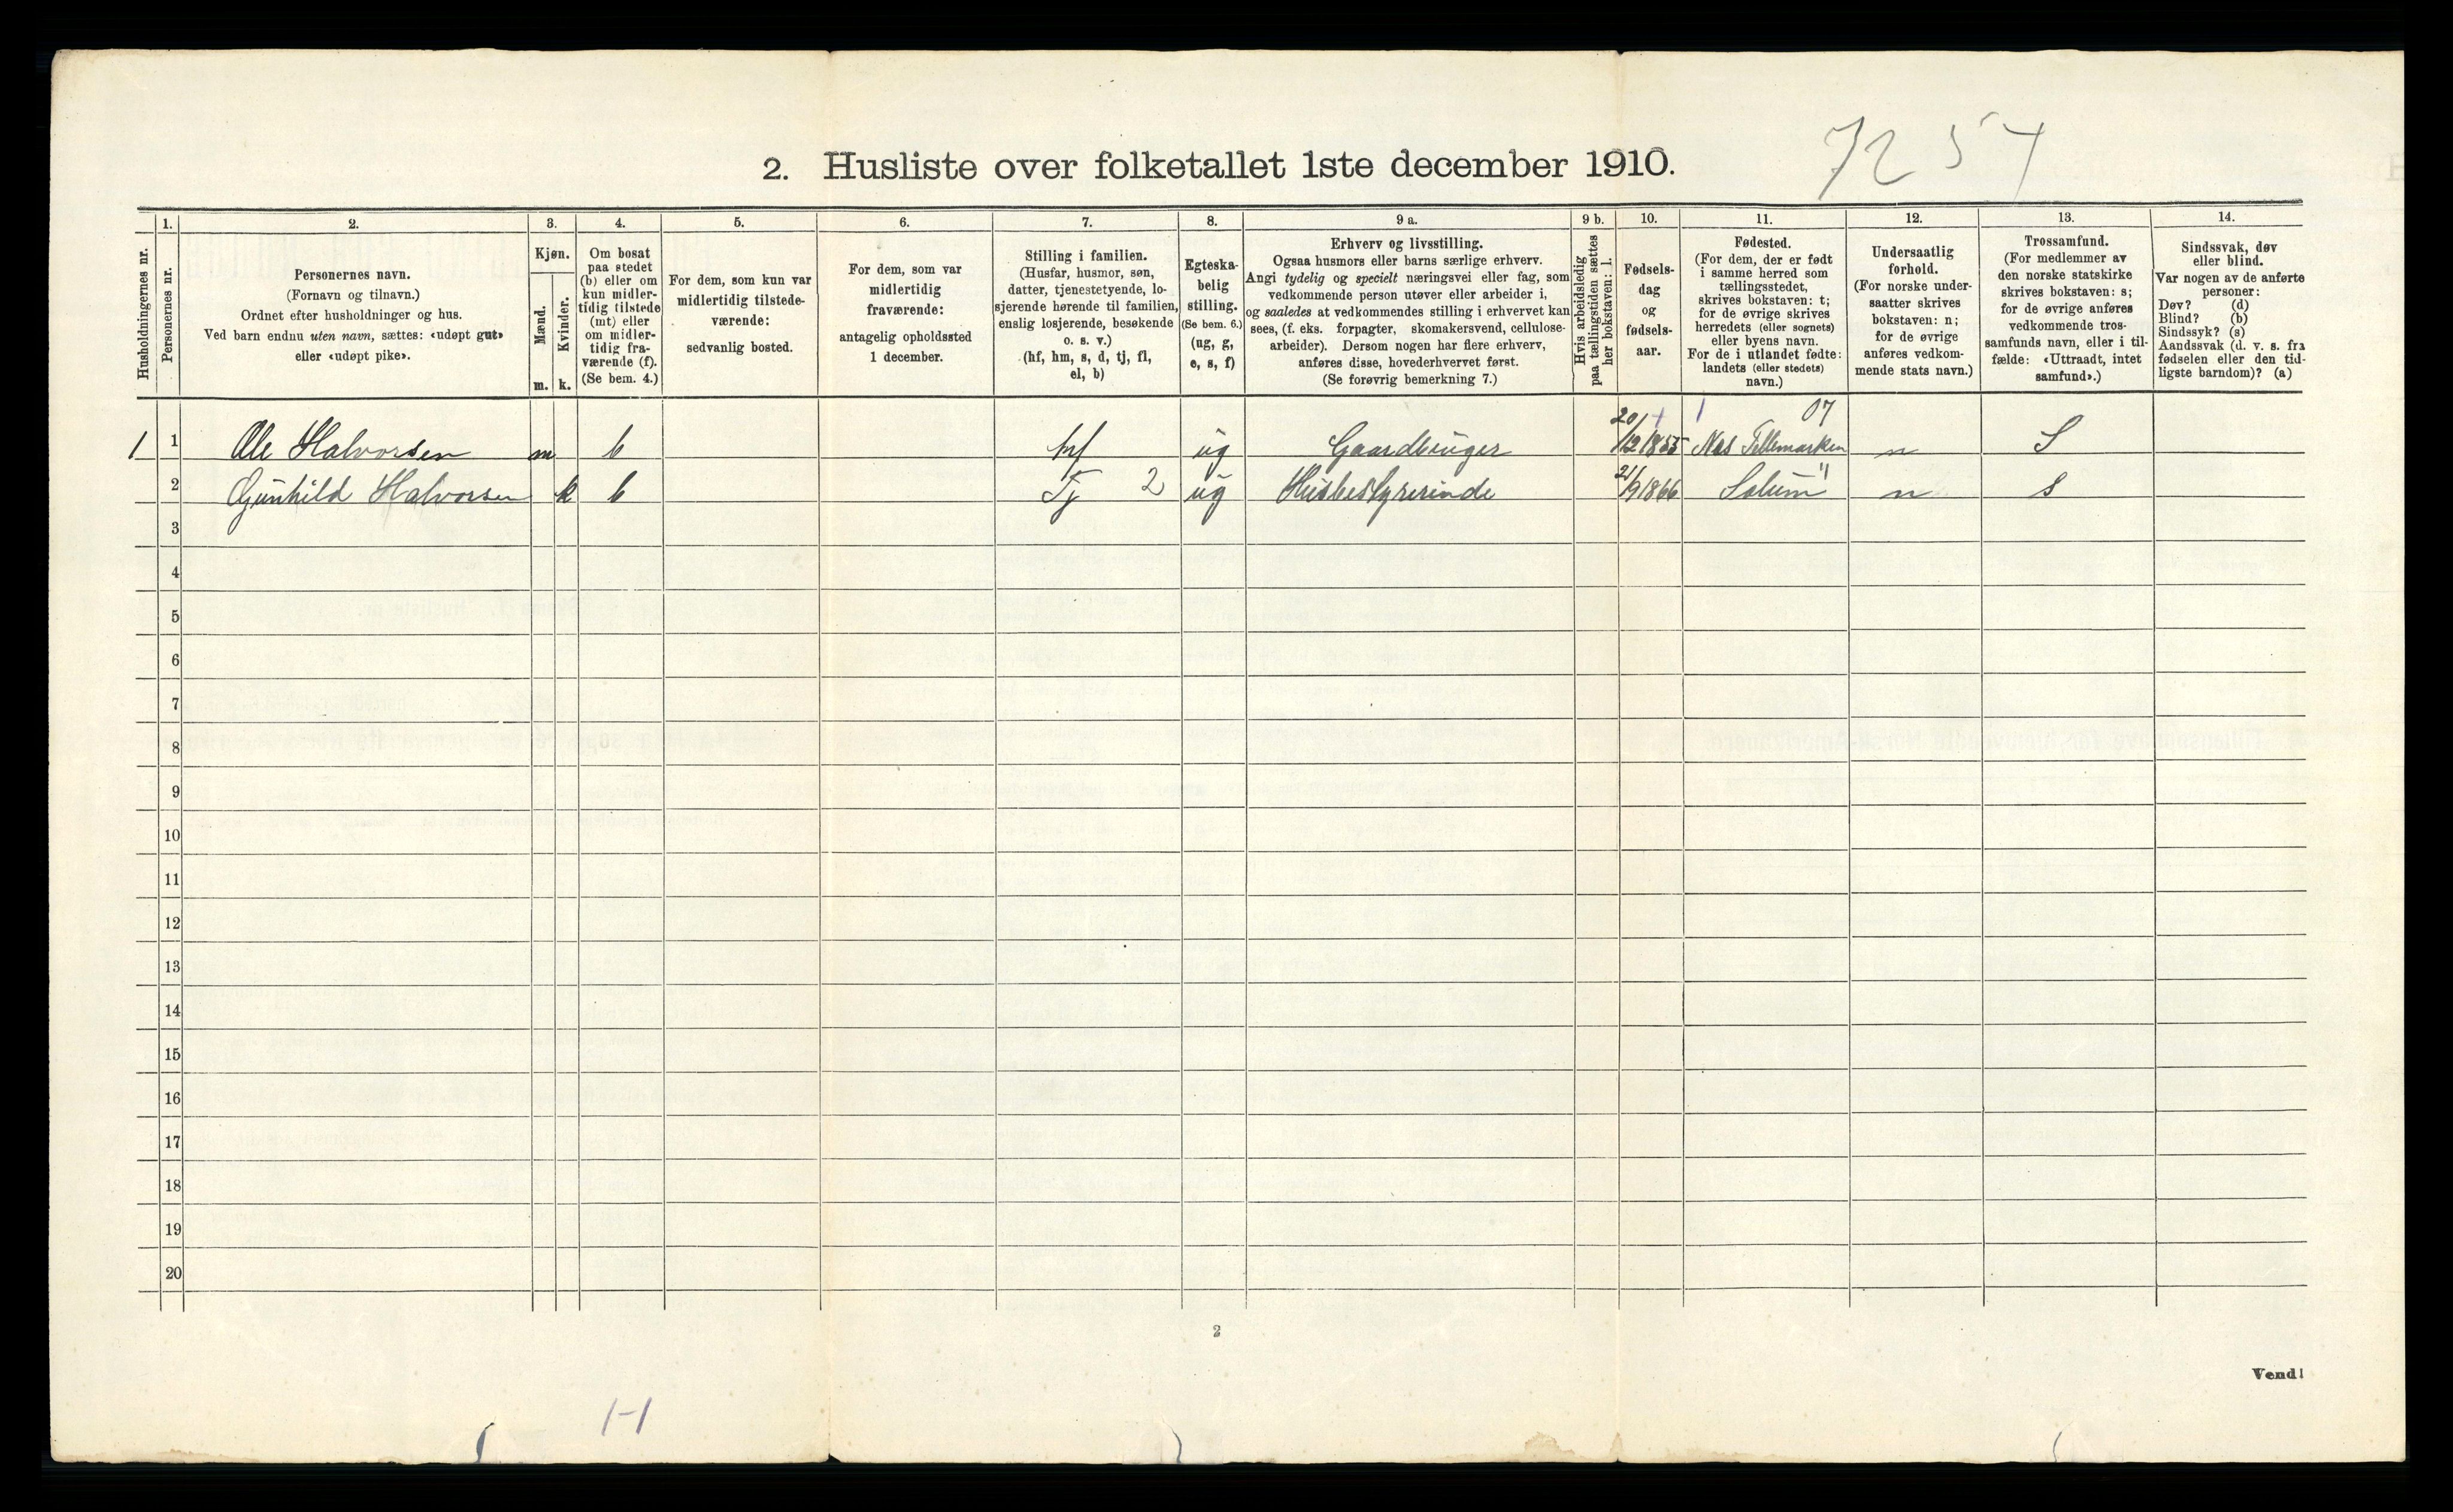 7257
2. Husliste over folketallet 1ste december 1910.
Husholdningernes nr.
1.
Personernes nr.
2.
Personernes navn.
(Fornavn og tilnavn.)
Ordnet efter husholdninger og hus.
Ved barn endnu uten navn, sættes: «udøpt gut»
eller «udøpt pike».
3.
Kjøn.
Mænd.
Kvinder.
m. k.
4.
Om bosat
paa stedet
(b) eller om
kun midler-
tidig tilstede
(mt) eller
om midler-
tidig fra-
værende (f).
(Se bem. 4.)
5.
For dem, som kun var
midlertidig tilstede-
værende:
sedvanlig bosted.
6.
For dem, som var
midlertidig
fraværende:
antagelig opholdssted
1 december.
7.
Stilling i familien.
(Husfar, husmor, søn,
datter, tjenestetyende, lo-
sjerende hørende til familien,
enslig losjerende, besøkende
o. s. v.)
(hf, hm, s, d, tj, fl,
el, b)
8.
Egteska-
belig
stilling.
(Se bem. 6.)
(ug, g,
e, s, f)
9 a.
Erhverv og livsstilling.
Ogsaa husmors eller barns særlige erhverv.
Angi tydelig og specielt næringsvei eller fag, som
vedkommende person utøver eller arbeider i,
og saaledes at vedkommendes stilling i erhvervet kan
sees, (f. eks. forpagter, skomakersvend, cellulose-
arbeider). Dersom nogen har flere erhverv,
anføres disse, hovederhvervet først.
(Se forøvrig bemerkning 7.)
9 b.
Hvis arbeidsledig
paa tællingstiden sættes
her bokstaven: l.
10.
Fødsels-
dag
og
fødsels-
aar.
11.
Fødested.
(For dem, der er født
i samme herred som
tællingsstedet,
skrives bokstaven: t;
for de øvrige skrives
herredets (eller sognets)
eller byens navn.
For de i utlandet fødte:
landets (eller stedets)
navn.)
12.
Undersaatlig
forhold.
(For norske under-
saatter skrives
bokstaven: n;
for de øvrige
anføres vedkom-
mende stats navn.)
13.
Trossamfund.
(For medlemmer av
den norske statskirke
skrives bokstaven: s;
for de øvrige anføres
vedkommende tros-
samfunds navn, eller i til-
fælde: «Uttraadt, intet
samfund».)
14.
Sindssvak, døv
eller blind.
Var nogen av de anførte
personer:
Døv? (d)
Blind? (b)
Sindssyk? (s)
Aandssvak (d. v. s. fra
fødselen eller den tid-
ligste barndom)? (a)
07
1 1 Ole Halvorsen m b hf ug Gaardbruger 20/12 1855 Nes Tellemarken n S
2 Gunhild Halvorsen k b Tj 2 ug Husbestyrerinde 21/9 1866 Solum " n s
3
4
5
6
7
8
9
10
11
12
13
14
15
16
17
18
19
20
2
Vend!
1-1